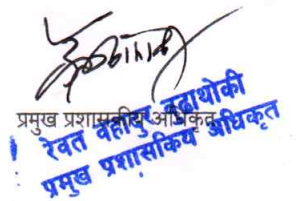 प्रमुख प्रशासकीय अधिकृत
रेवत वहादुर बुढाथोकी
प्रमुख प्रशासकिय अधिकृत